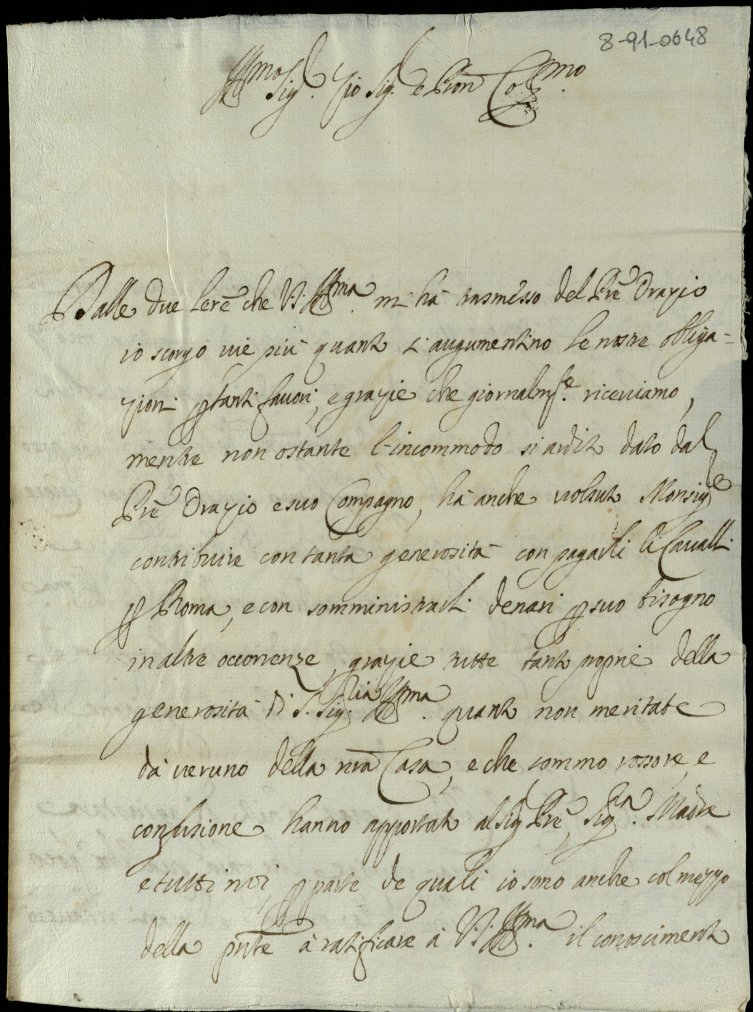 8-91-0648
Ill.mo Sig. Zio Sig. e Pron Co.mo
Dalle due lere che V.S. Ill.ma mi hà trasmesso del Pre Orazio
io scorgo vie più quanto s'augumentino le nostre obliga-
zioni p tanti favori, e grazie che giornalm.te riceviamo,
mentre non ostante l'incommodo si ardito dato dal
Pre Orazio e suo Compagno, hà anche volsuto Monsig.e
contribuire con tanta generosità con pagarli li Cavalli
p Roma, e con somministrarli denari p suo bisogno
in altre occorrenze, grazie tutte tanto proprie della
generosità di S. Sig.ria Ill.ma quanto non meritate
da veruno della nra Casa, e che sommo rossore, e
confusione hanno apportato al Sig. Pre, Sig.ra Madre
e tutti noi, p parte de quali io sono anche col mezzo
della pnte à ratificare à V.S. Ill.ma il conoscimento